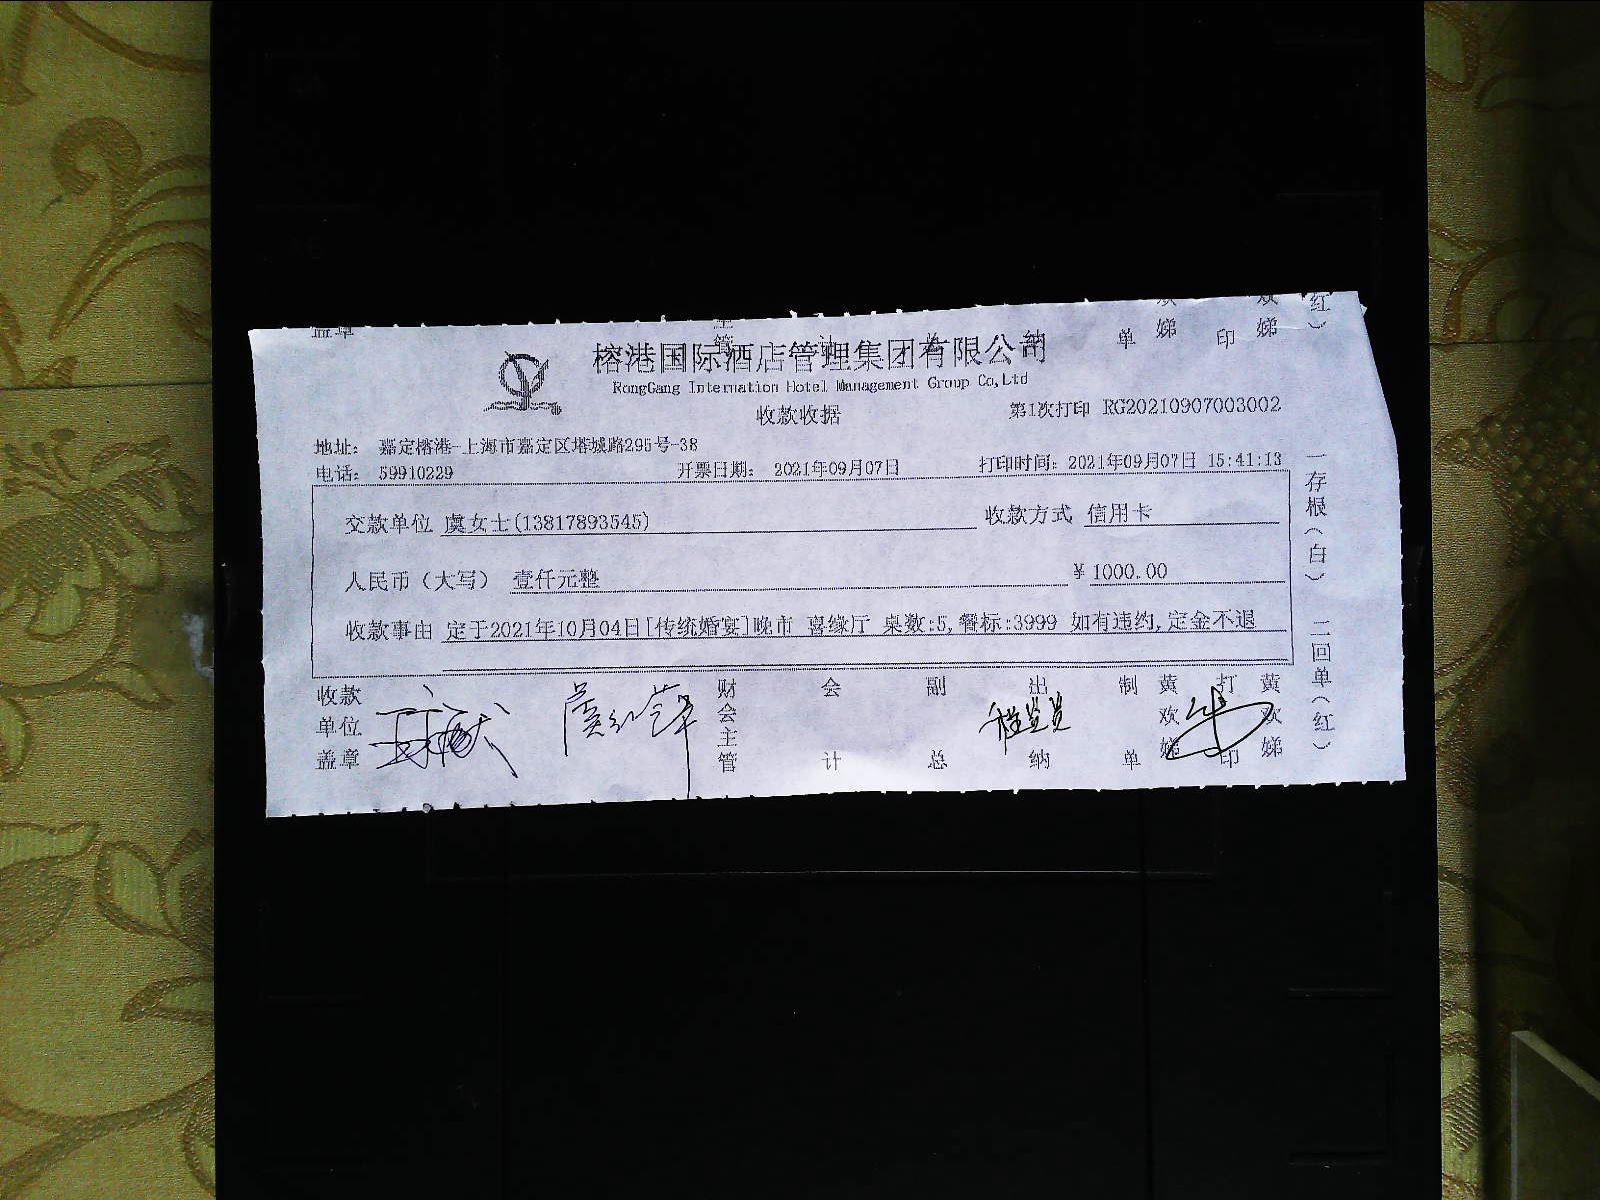 榕港国际酒店管理集团有限公司
RongGang Internation Hotel Management Group Co,Ltd
收款收据
第1次打印 RG20210907003002
地址： 嘉定榕港-上海市嘉定区塔城路295号-38
电话： 59910229 开票日期： 2021年09月07日 打印时间：2021年09月07日 15:41:13
交款单位 虞女士(13817893545) 收款方式 信用卡
人民币（大写） 壹仟元整 ¥1000.00
收款事由 定于2021年10月04日[传统婚宴]晚市 喜缘厅 桌数:5,餐标:3999 如有违约,定金不退
收款单位盖章 财会主管 会计 副总 出纳 制单 黄欢娣 打印 黄欢娣
一存根（白） 二回单（红）